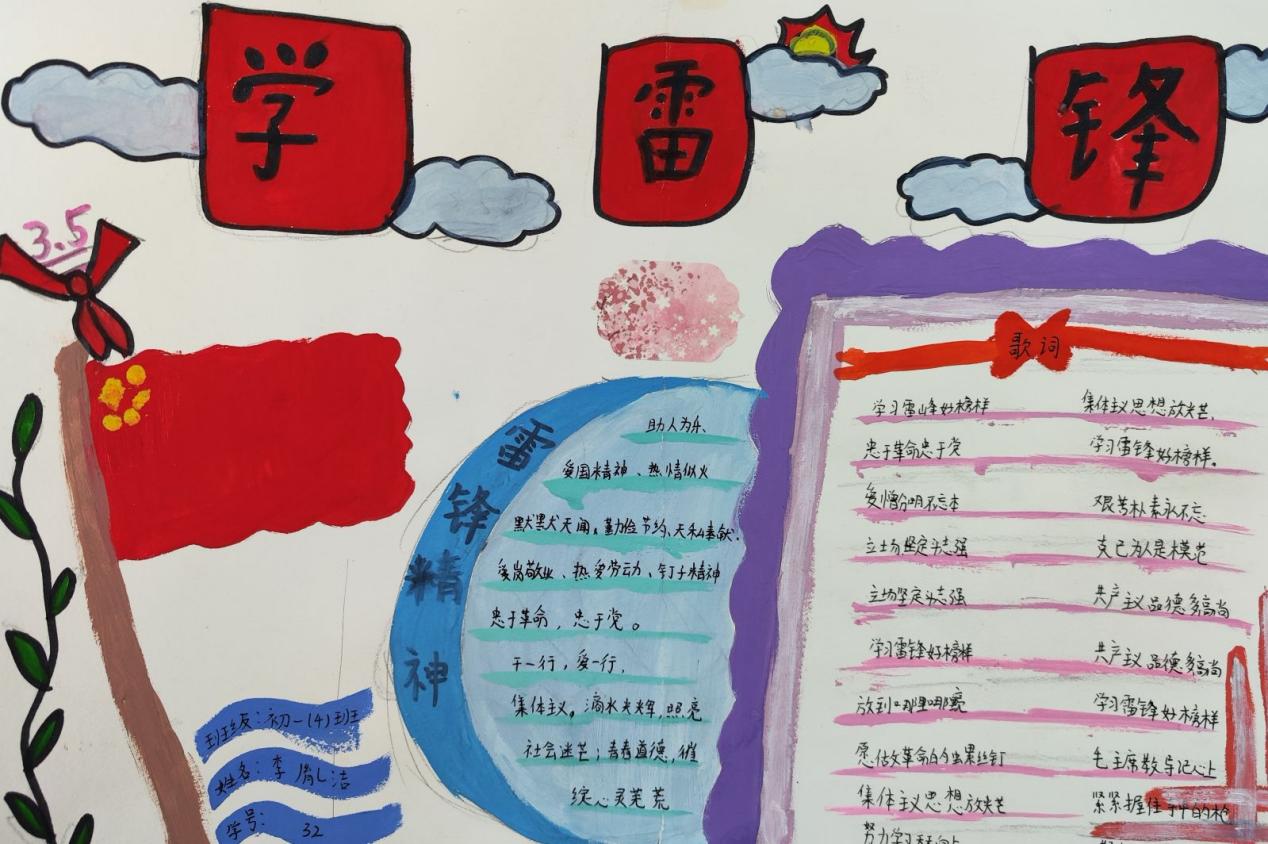 学雷锋
3.5
雷锋精神
助人为乐、
爱国精神、热情似火
默默无闻。勤俭节约、无私奉献.
爱岗敬业、热爱劳动、钉子精神
忠于革命，忠于党。
干一行，爱一行.
集体主义。滴水光辉，照亮
社会迷芒；青春道德，催
绽心灵芜荒
班级：初一(4)班
姓名：李
洁
学号： 32
歌词
学习雷峰好榜样
忠于革命忠于党
爱憎分明不忘本
立场坚定斗志强
立场坚定斗志强
学习雷锋好榜样
放到哪里哪
愿做革命的
螺丝钉
集体主义思想放光芒
集体主义思想放光芒.
学习雷锋好榜样。
艰苦朴素永不忘
克己为人是模范
共产主义品德多高尚
共产主义品德多高尚
学习雷锋好榜样
毛主席教导记心上
紧紧握住手中的枪